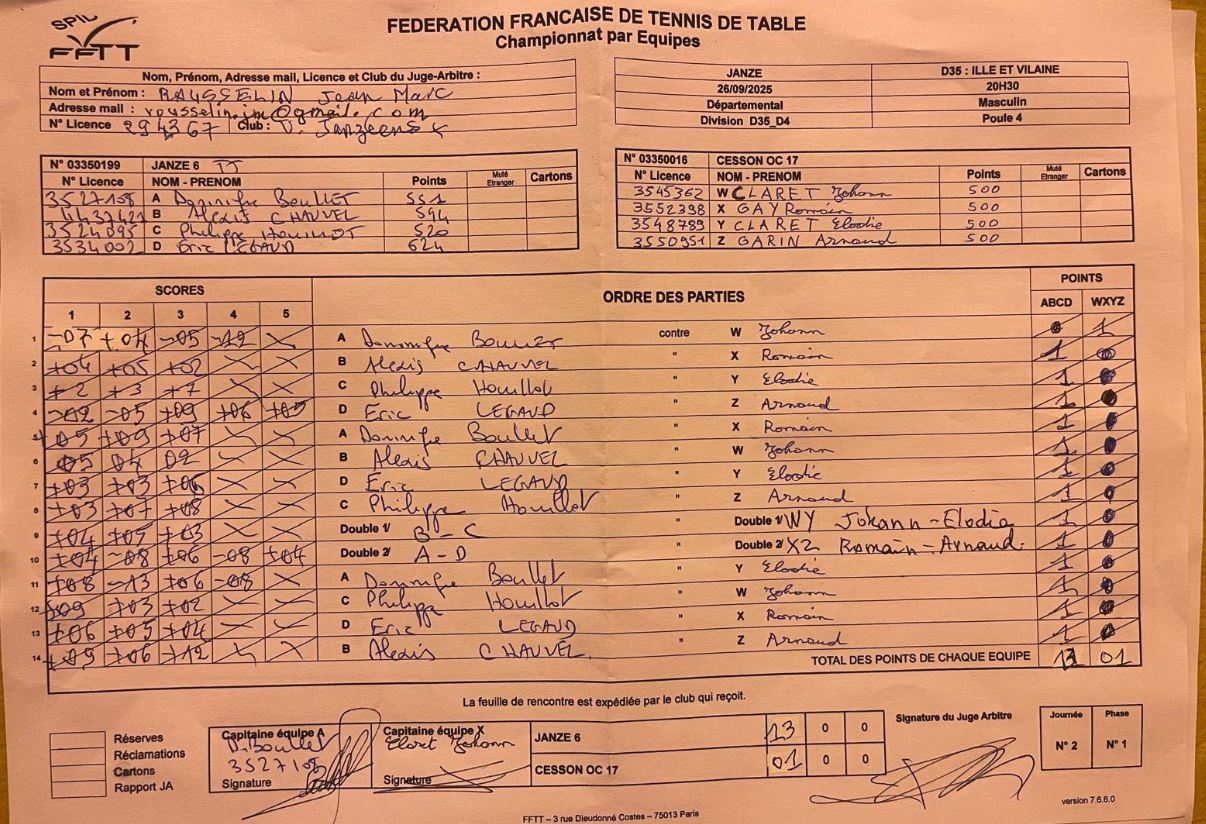 SPID
FFTT
FEDERATION FRANCAISE DE TENNIS DE TABLE
Championnat par Equipes
Nom, Prénom, Adresse mail, Licence et Club du Juge-Arbitre :
Nom et Prénom : RAUSSELIN Jean Marc
Adresse mail : rousselin.jm@gmail.com
N° Licence 294367 Club :
JANZE D35 : ILLE ET VILAINE
26/09/2025 20H30
Départemental Masculin
Division D35_D4 Poule 4
N° 03350199 JANZE 6 TT
N° Licence NOM - PRENOM Points Muté Etranger Cartons
3527108 A Dominique BoulLET 551
4437421 B Alexis CHAUVEL 594
3524895 C Philippe Houillot 520
3534002 D Eric LEGAUD 624
N° 03350016 CESSON OC 17
N° Licence NOM - PRENOM Points Muté Etranger Cartons
3545362 W CLARET Johann 500
3552398 X GAY Romain 500
3548789 Y CLARET Elodie 500
3550951 Z GARIN Arnaud 500
SCORES ORDRE DES PARTIES POINTS
1 2 3 4 5 ABCD WXYZ
1 -07 +04 -05 -12 X A Dominique Boullet contre W Johann 0 1
2 +04 +05 +02 X X B Alexis CHAUVEL " X Romain 1 0
3 +2 +3 +7 X X C Philippe Houillot " Y Elodie 1 0
4 -02 -05 +09 +06 +05 D Eric LEGAUD " Z Arnaud 1 0
5 +05 +09 +07 X X A Dominique Boullet " X Romain 1 0
6 05 04 02 X X B Alexis CHAUVEL " W Johann 1 0
7 +03 +03 +06 X X D Eric LEGAUD " Y Elodie 1 0
8 +03 +07 +08 X X C Philippe Houillot " Z Arnaud 1 0
9 +04 +05 +03 X X Double 1/ B-C " Double 1/ WY Johann-Elodie 1 0
10 +04 -08 +06 -08 +04 Double 2/ A-D " Double 2/ XZ Romain-Arnaud 1 0
11 +08 -13 +06 -08 X A Dominique Boullet " Y Elodie 1 0
12 +03 +02 X X C Philippe Houillot " W Johann 1 0
13 +06 +05 +04 X X D Eric LEGAUD " X Romain 1 0
14 +09 +06 +12 X X B Alexis CHAUVEL " Z Arnaud 1 0
TOTAL DES POINTS DE CHAQUE EQUIPE 13 01
La feuille de rencontre est expédiée par le club qui reçoit.
Réserves
Réclamations
Cartons
Rapport JA
Capitaine équipe A
D. Boullet
3527108
Signature
Capitaine équipe X
Claret Johann
Signature
JANZE 6 13 0 0
CESSON OC 17 01 0 0
Signature du Juge Arbitre
Journée Phase
N° 2 N° 1
version 7.6.6.0
FFTT – 3 rue Dieudonné Costes – 75013 Paris